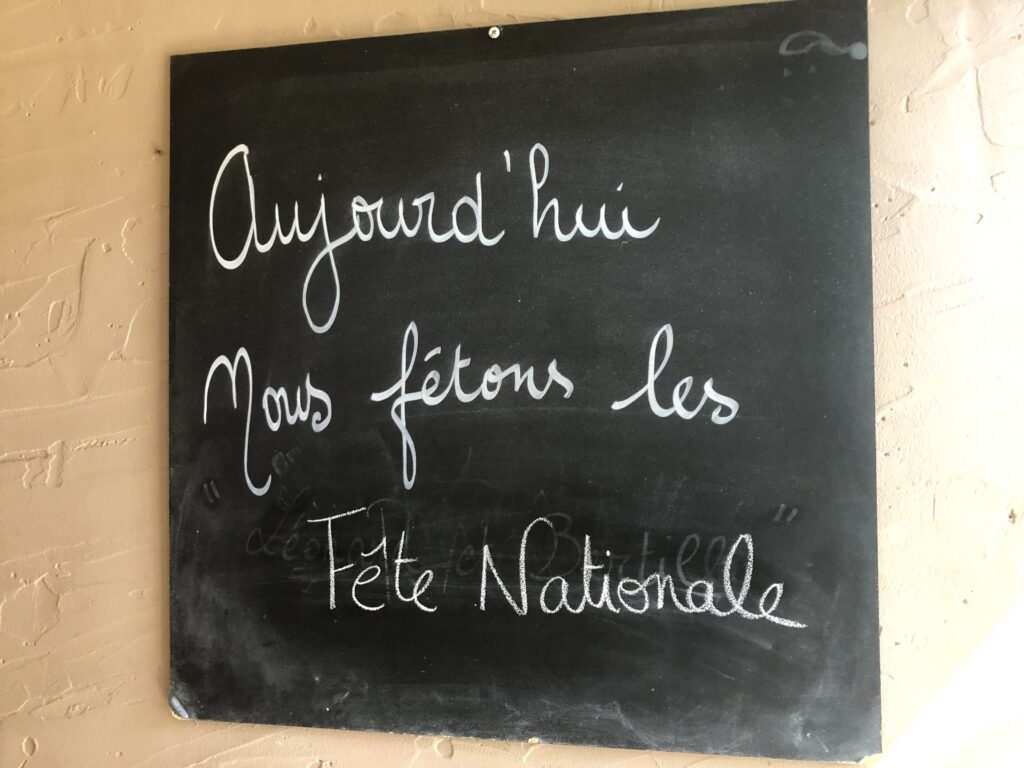 Aujourd'hui
Nous fétons les
Fête Nationale